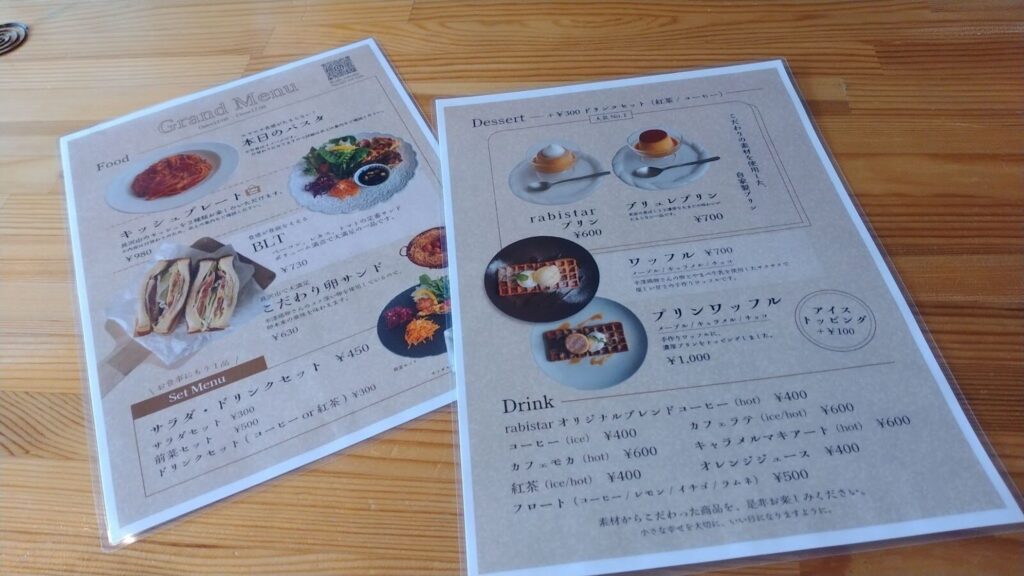 Grand Menu
Food
本日のパスタ
キッシュプレート
¥980
BLT
¥730
こだわり卵サンド
¥630
\お食事にもう1品/
Set Menu
サラダ・ドリンクセット ¥450
サラダセット ¥300
前菜セット ¥500
ドリンクセット(コーヒー or 紅茶) ¥300
Dessert
+¥300 ドリンクセット(紅茶 / コーヒー)
人気No.1
こだわりの素材を使用した
自家製プリン
rabistar
プリン
¥600
ブリュレプリン
¥700
ワッフル ¥700
メープル / キャラメル / チョコ
プリンワッフル
メープル / キャラメル / チョコ
手作りワッフルに、
濃厚プリンをトッピングしました。
¥1,000
アイス
トッピング
+¥100
Drink
rabistar オリジナルブレンドコーヒー (hot) ¥400
コーヒー (ice) ¥400
カフェラテ (ice/hot) ¥600
カフェモカ (hot) ¥600
キャラメルマキアート (hot) ¥600
紅茶 (ice/hot) ¥400
オレンジジュース ¥400
フロート (コーヒー / レモン / イチゴ / ラムネ) ¥500
素材からこだわった商品を、是非お楽しみください。
小さな幸せを大切に、いい日になりますように。